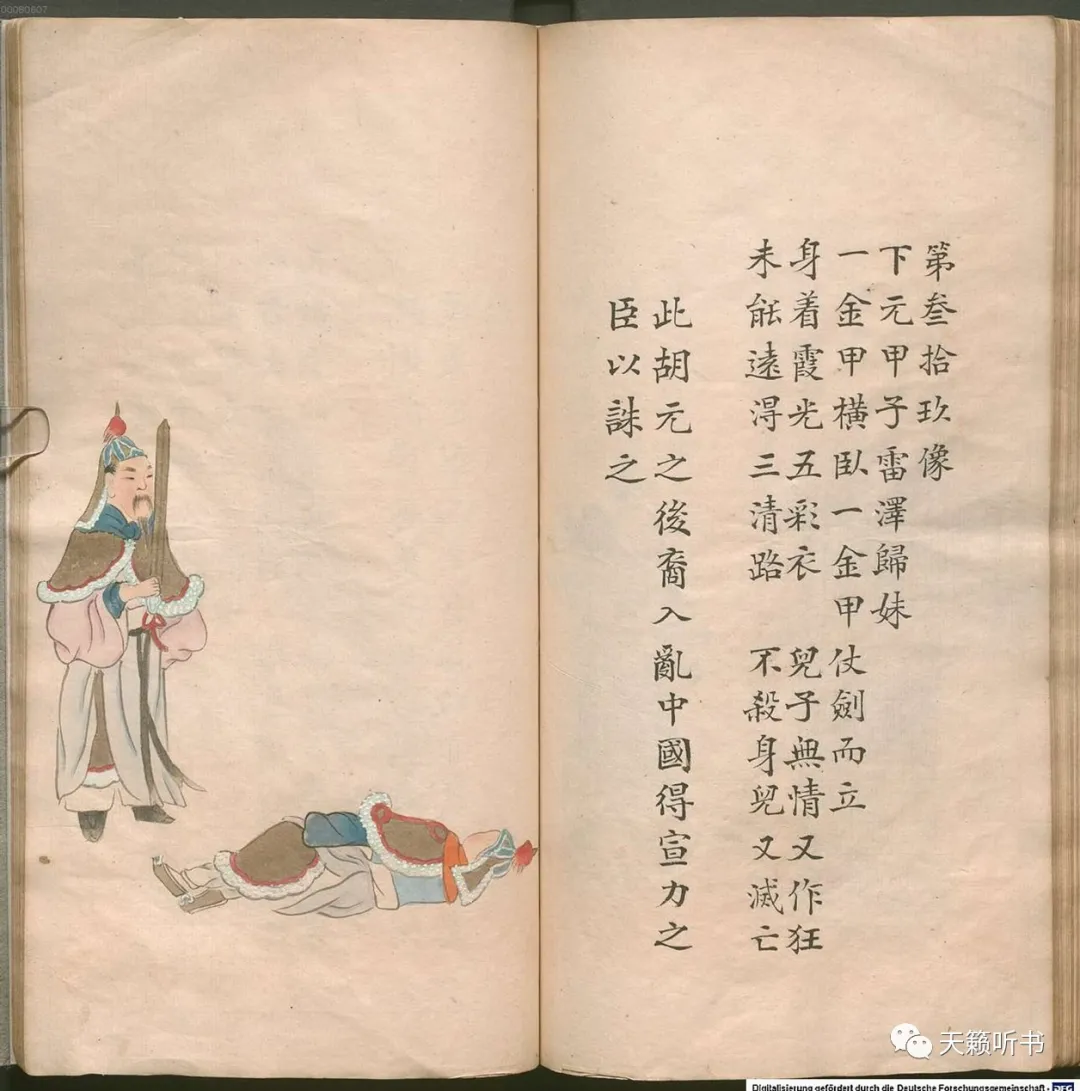 00080607
第叁拾玖像
下元甲子雷澤歸妹
一金甲橫臥一金甲仗劍而立
身着霞光五彩衣 兒子無情又作狂
未能遠得三清路 不殺身兒又滅亡
此胡元之後裔入亂中國得宣力之
臣以誅之
天籁听书
Digitalisierung gefördert durch die Deutsche Forschungsgemeinschaft - DFG